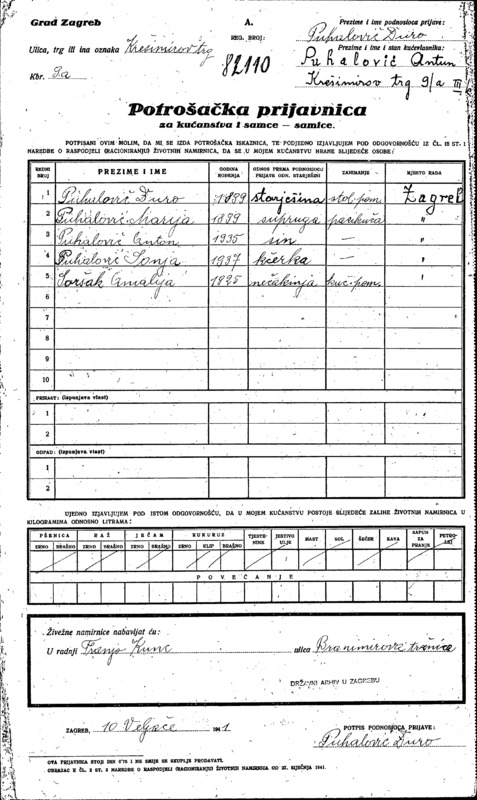 Grad Zagreb
A.
Prezime i ime podnosioca prijave:
Puhalović Đuro
Ulica, trg ili ina oznaka Krešimirov trg
REG. BROJ:
82110
Prezime i ime i stan kućevlasnika:
Puhalović Antun
Kbr. 9a
Krešimirov trg 9/a III
Potrošačka prijavnica
za kućanstva i samce — samice.
POTPISANI OVIM MOLIM, DA MI SE IZDA POTROŠAČKA ISKAZNICA, TE PODJEDNO IZJAVLJUJEM POD ODGOVORNOŠĆU IZ ČL. 18 ST. 1
NAREDBE O RASPODJELI (RACIONIRANJU) ŽIVOTNIH NAMIRNICA, DA SE U MOJEM KUĆANSTVU HRANE SLIJEDEĆE OSOBE:
REDNI BROJ PREZIME I IME GODINA ROĐENJA ODNOS PREMA PODNOSIOCU PRIJAVE ODN. STARJEŠINI ZANIMANJE MJESTO RADA
1 Puhalović Đuro 1889 starješina stol. pom. Zagreb
2 Puhalović Marija 1899 supruga pazikuća "
3 Puhalović Anton 1935 sin — "
4 Puhalović Sonja 1937 kćerka — "
5 Soršak Amalija 1925 nećakinja kuć. pom. "
6
7
8
9
10
PRIRAST: (ispunjava vlast)
1
2
ODPAD: (ispunjava vlast)
1
2
UJEDNO IZJAVLJUJEM POD ISTOM ODGOVORNOŠĆU, DA U MOJEM KUĆANSTVU POSTOJE SLIJEDEĆE ZALIHE ŽIVOTNIH NAMIRNICA U
KILOGRAMIMA ODNOSNO LITRAMA:
PŠENICA RAŽ JEČAM KUKURUZ TJESTENINE JESTIVO ULJE MAST SOL ŠEĆER KAVA SAPUN ZA PRANJE PETROLEJ
ZRNO BRAŠNO ZRNO BRAŠNO ZRNO BRAŠNO ZRNO KLIP BRAŠNO
POVEĆANJE
Živežne namirnice nabavljat ću:
U radnji Franjo Kunc ulica Branimirova tržnica
DRŽAVNI ARHIV U ZAGREBU
ZAGREB, 10 Veljače 1941
POTPIS PODNOSIOCA PRIJAVE:
Puhalović Đuro
OVA PRIJAVNICA STOJI DIN 0·75 I NE SMIJE SE SKUPLJE PRODAVATI.
OBRAZAC K ČL. 3 ST. 3 NAREDBE O RASPODJELI (RACIONIRANJU) ŽIVOTNIH NAMIRNICA OD 21. SIJEČNJA 1941.